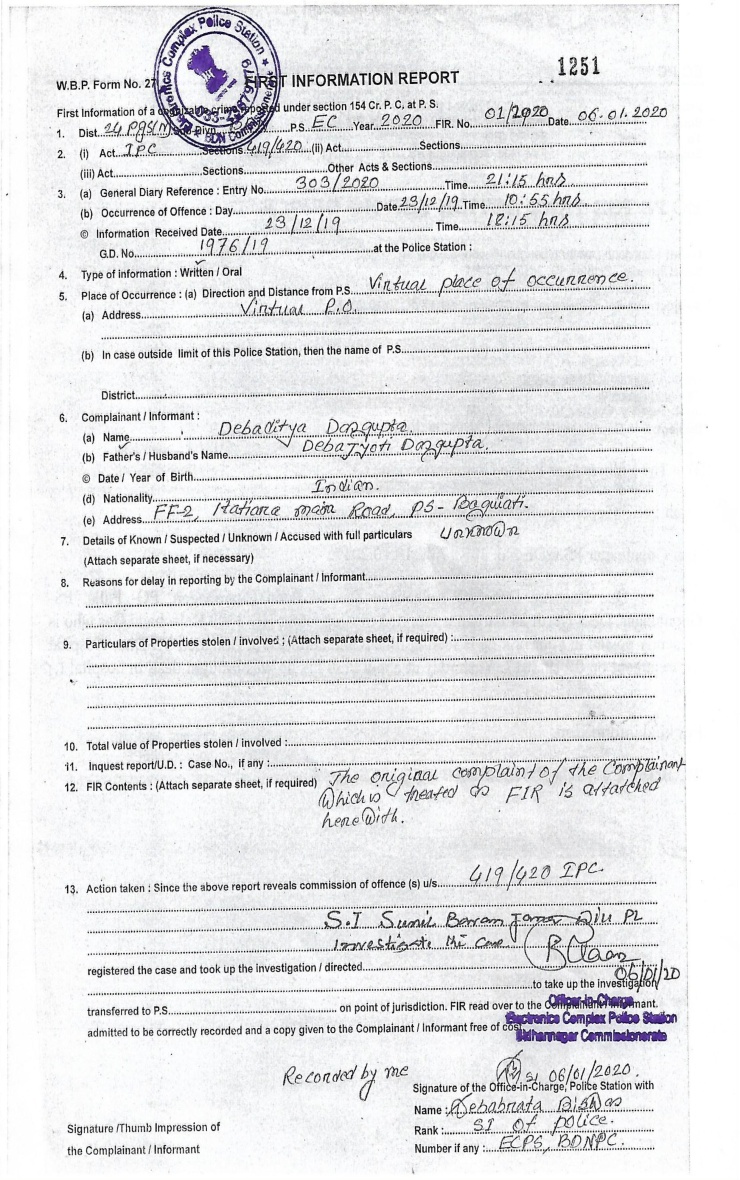 Electronics Complex Police Station
BDN Commissionerate
1251
W.B.P. Form No. 27
FIRST INFORMATION REPORT
First Information of a cognizable crime reported under section 154 Cr. P. C, at P. S.
1. Dist. 24 PGS(N) Sub-Divn. P.S. EC Year 2020 FIR. No. 01/2020 Date 06.01.2020
2. (i) Act IPC Sections 419/420 (ii) Act Sections
(iii) Act Sections Other Acts & Sections
3. (a) General Diary Reference : Entry No. 303/2020 Time 21:15 hrs
(b) Occurrence of Offence : Day Date 23/12/19 Time 10:55 hrs
© Information Received Date 23/12/19 Time 18:15 hrs
G.D. No. 1976/19 at the Police Station :
4. Type of information : Written / Oral
5. Place of Occurrence : (a) Direction and Distance from P.S. Virtual place of occurrence.
(a) Address Virtual P.O.
(b) In case outside limit of this Police Station, then the name of P.S.
District
6. Complainant / Informant :
(a) Name Debaditya Dasgupta
(b) Father's / Husband's Name Debajyoti Dasgupta.
© Date / Year of Birth
(d) Nationality Indian.
(e) Address FF-2, Hatiara main Road, PS- Baguiati.
7. Details of Known / Suspected / Unknown / Accused with full particulars Unknown
(Attach separate sheet, if necessary)
8. Reasons for delay in reporting by the Complainant / Informant
9. Particulars of Properties stolen / involved ; (Attach separate sheet, if required) :
10. Total value of Properties stolen / involved :
11. Inquest report/U.D. : Case No., if any :
12. FIR Contents : (Attach separate sheet, if required) The original complaint of the Complainant
Which is treated as FIR is attatched
here with.
13. Action taken : Since the above report reveals commission of offence (s) u/s. 419/420 IPC.
S.I Sunil Baran will PL
Investigate the case
registered the case and took up the investigation / directed
06/01/20
to take up the investigation
transferred to P.S. on point of jurisdiction. FIR read over to the Complainant / Informant.
Officer-in-Charge
admitted to be correctly recorded and a copy given to the Complainant / Informant free of cost.
Electronics Complex Police Station
Bidhannagar Commissionerate
Recorded by me
SI 06/01/2020.
Signature of the Office-in-Charge, Police Station with
Name : Debabrata Biswas
Rank : SI of police.
Number if any : ECPS, BDNPC.
Signature /Thumb Impression of
the Complainant / Informant